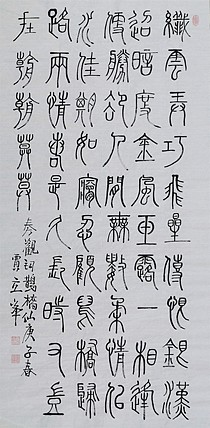 纖雲弄巧飛星傳恨銀漢
迢迢暗度金風玉露一相逢
便勝卻人間無數柔情似
水佳期如夢忍顧鵲橋歸
路兩情若是久長時又豈
在朝朝暮暮
秦觀詞鵲橋仙庚子春